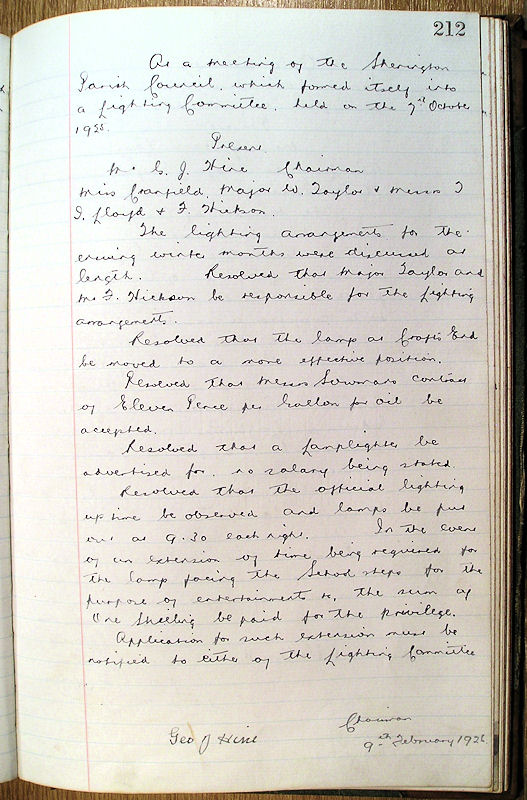 212
At a meeting of the Sherington
Parish Council, which formed itself into
a Lighting Committee, held on the 7th October
1925.
Present
Mr G. J. Hine Chairman
Miss Cranfield, Major W. Taylor & Messrs T
I. Lloyd & F. Hickson.
The lighting arrangements for the
ensuing winter months were discussed at
length. Resolved that Major Taylor and
Mr F. Hickson be responsible for the lighting
arrangements.
Resolved that the lamp at Crofts End
be moved to a more effective position.
Resolved that Messrs Sowmans contract
of Eleven Pence per Gallon for oil be
accepted.
Resolved that a Lamplighter be
advertised for, no salary being stated.
Resolved that the official lighting
up time be observed and lamps be put
out at 9.30 each night. In the event
of an extension of time being required for
the lamp facing the School steps for the
purpose of entertainments &c, the sum of
One Shilling be paid for the privilege.
Application for such extension must be
notified to either of the Lighting Committee
Chairman
Geo J Hine
9th February 1926.